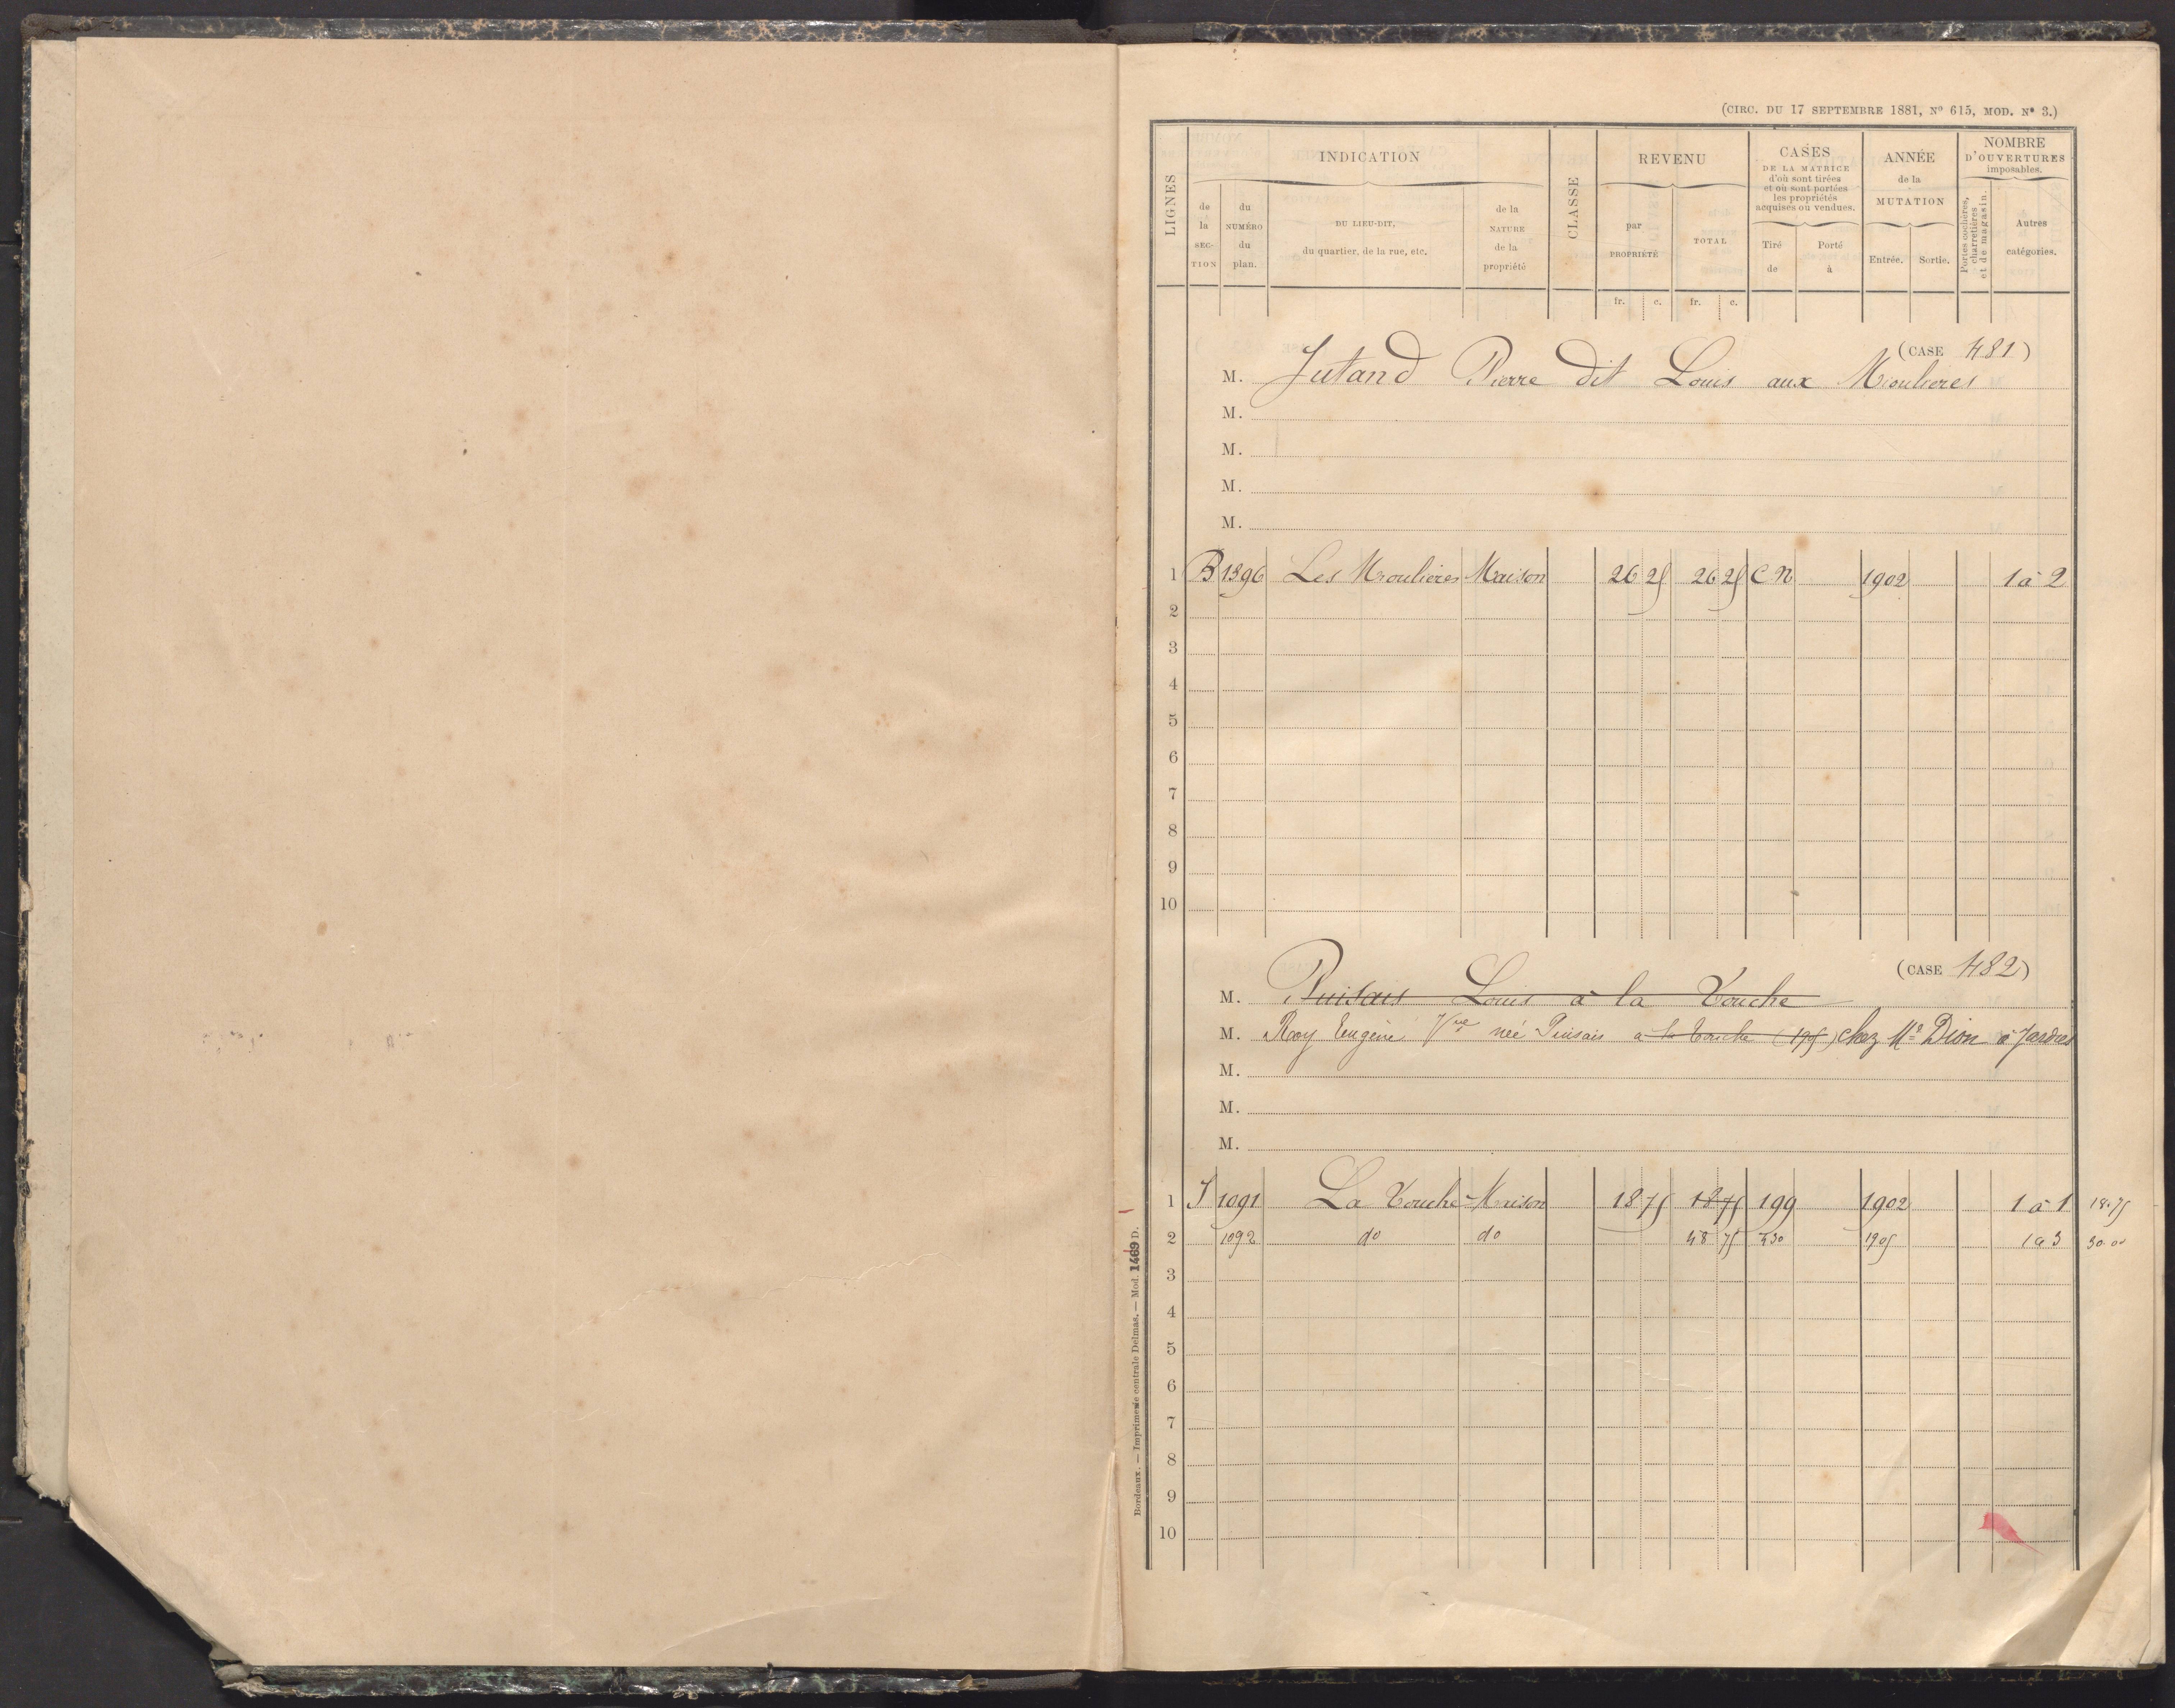 (CIRC. DU 17 SEPTEMBRE 1881, Nº 615, MOD. Nº 3.)
LIGNES
INDICATION
de la SECTION
du NUMÉRO du plan.
DU LIEU-DIT, du quartier, de la rue, etc.
de la NATURE de la propriété
CLASSE
REVENU
par PROPRIÉTÉ
TOTAL
CASES DE LA MATRICE d'où sont tirées et où sont portées les propriétés acquises ou vendues.
Tiré de
Porté à
ANNÉE de la MUTATION
Entrée. Sortie.
NOMBRE D'OUVERTURES imposables.
Portes cochères, charretières et de magasin.
Autres catégories.
fr. c. fr. c.
(CASE 481)
M. Jutand Pierre dit Louis aux Mioulieres
M.
M.
M.
M.
1 B 1396 Les Mioulieres Maison 26 25 26 25 C N 1902 1 à 2
2
3
4
5
6
7
8
9
10
(CASE 482)
M. Puisais Louis à la Touche
M. Roy Eugène Vve née Puisais à la Touche (195) chez Me Dion à Jardres
M.
M.
M.
1 J 1091 La Touche Maison 18 75 18 75 199 1902 1 à 1 18.75
2 1092 do do 48 75 430 1905 1 à 3 30.00
3
4
5
6
7
8
9
10
Bordeaux. — Imprimerie centrale Delmas. — Mod. 1469 D.